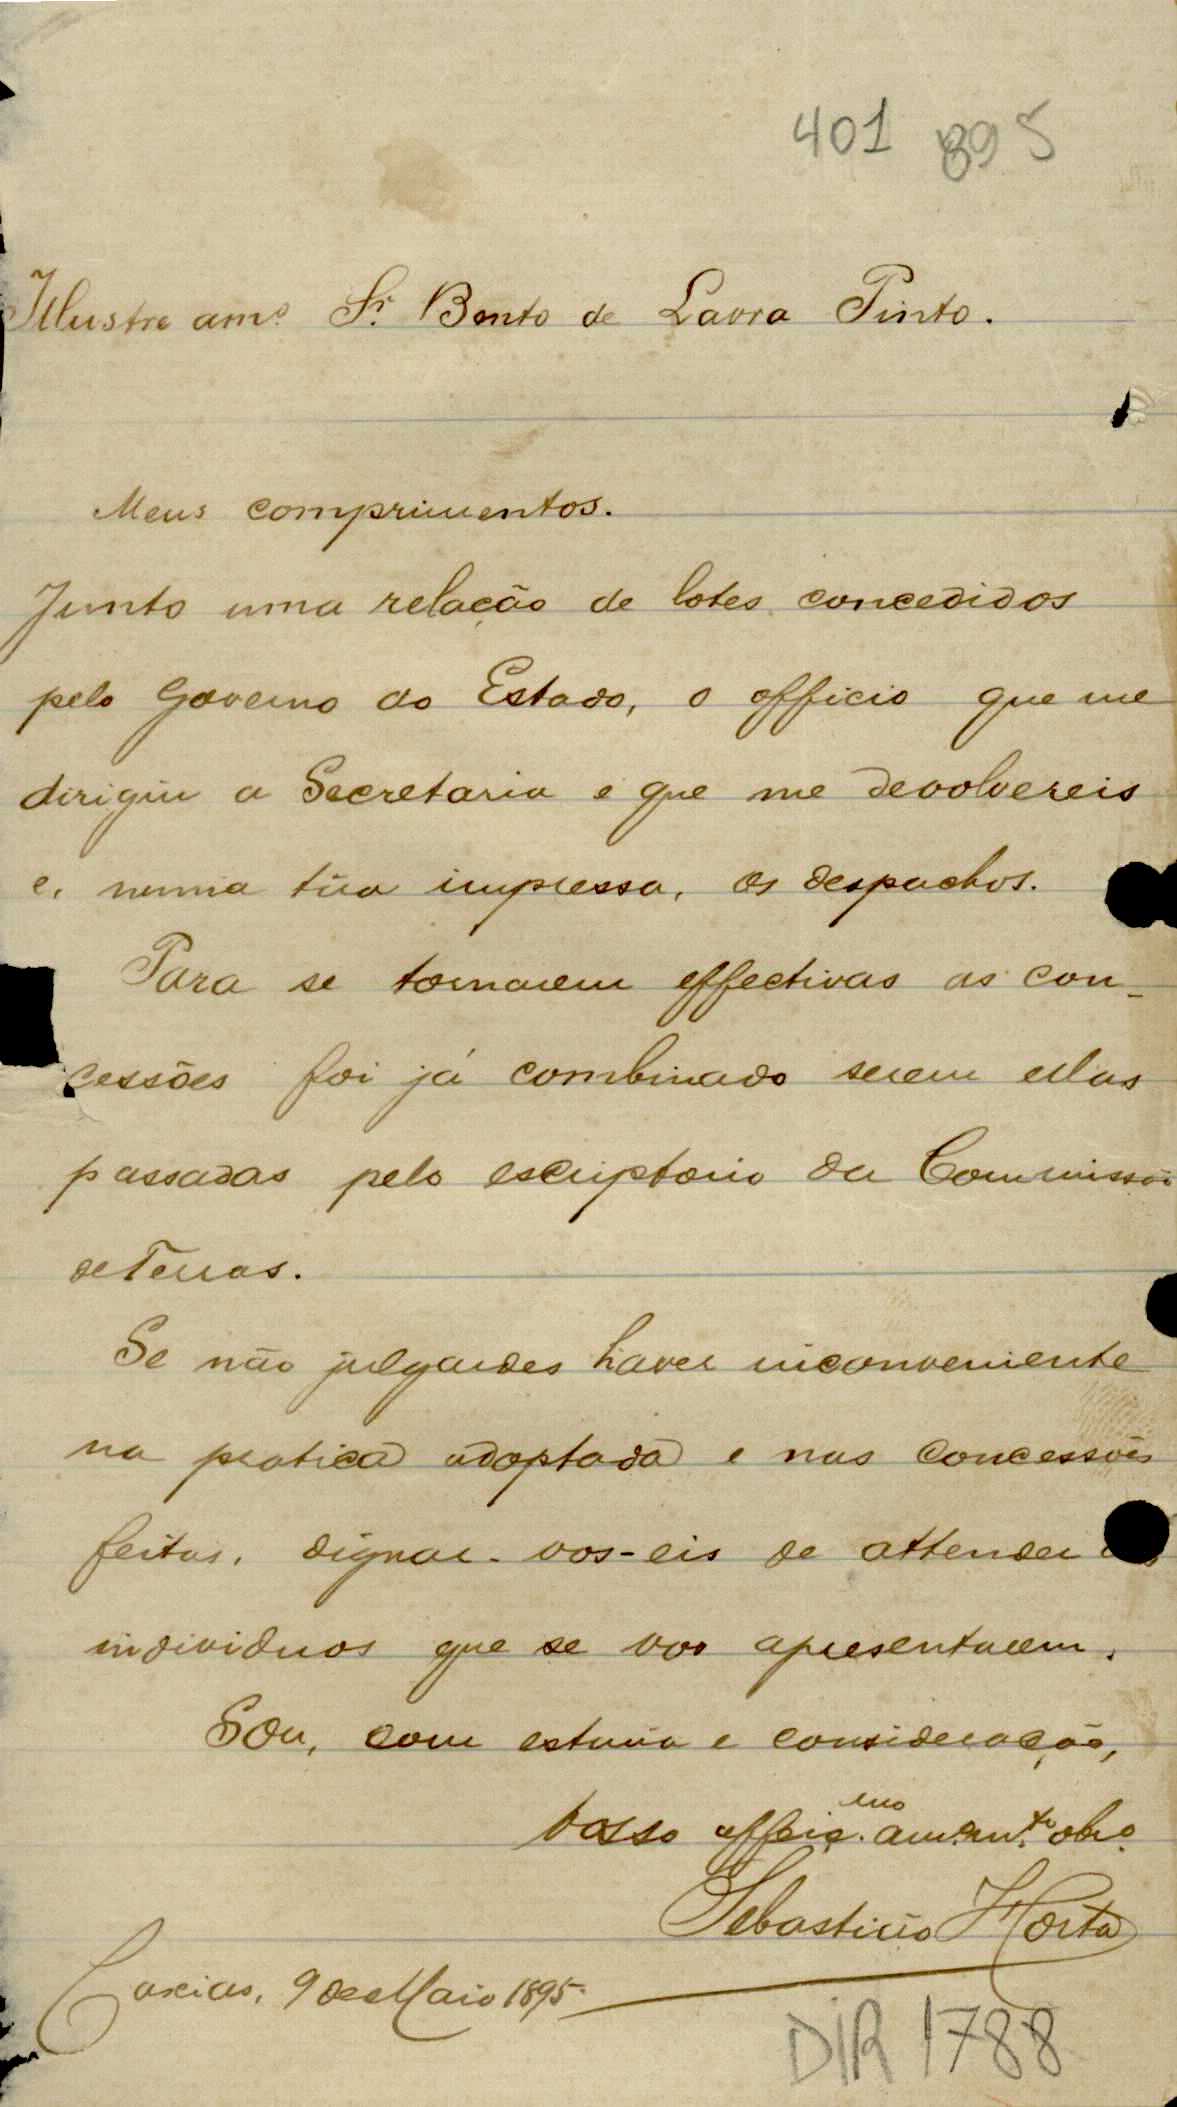 401 895
Illustre amº. Sr. Bento de Lavra Pinto.
Meus comprimentos.
Junto uma relação de lotes concedidos
pelo Governo do Estado, o officio que me
dirigiu a Secretaria e que me devolvereis
e, numa tira impressa, os despachos.
Para se tornarem effectivas as con-
cessões foi já combinado serem ellas
passadas pelo escriptorio da Commissão
de Terras.
Se não julgardes haver inconveniente
na pratica adoptada e nas concessões
feitas, dignar-vos-eis de attender
individuos que se vos apresentarem.
Sou, com estima e consideração,
Vosso affeiç.mo am.º m.to obr.º
Sebastião Horta
Caxias, 9 de Maio 1895.
DIR 1788